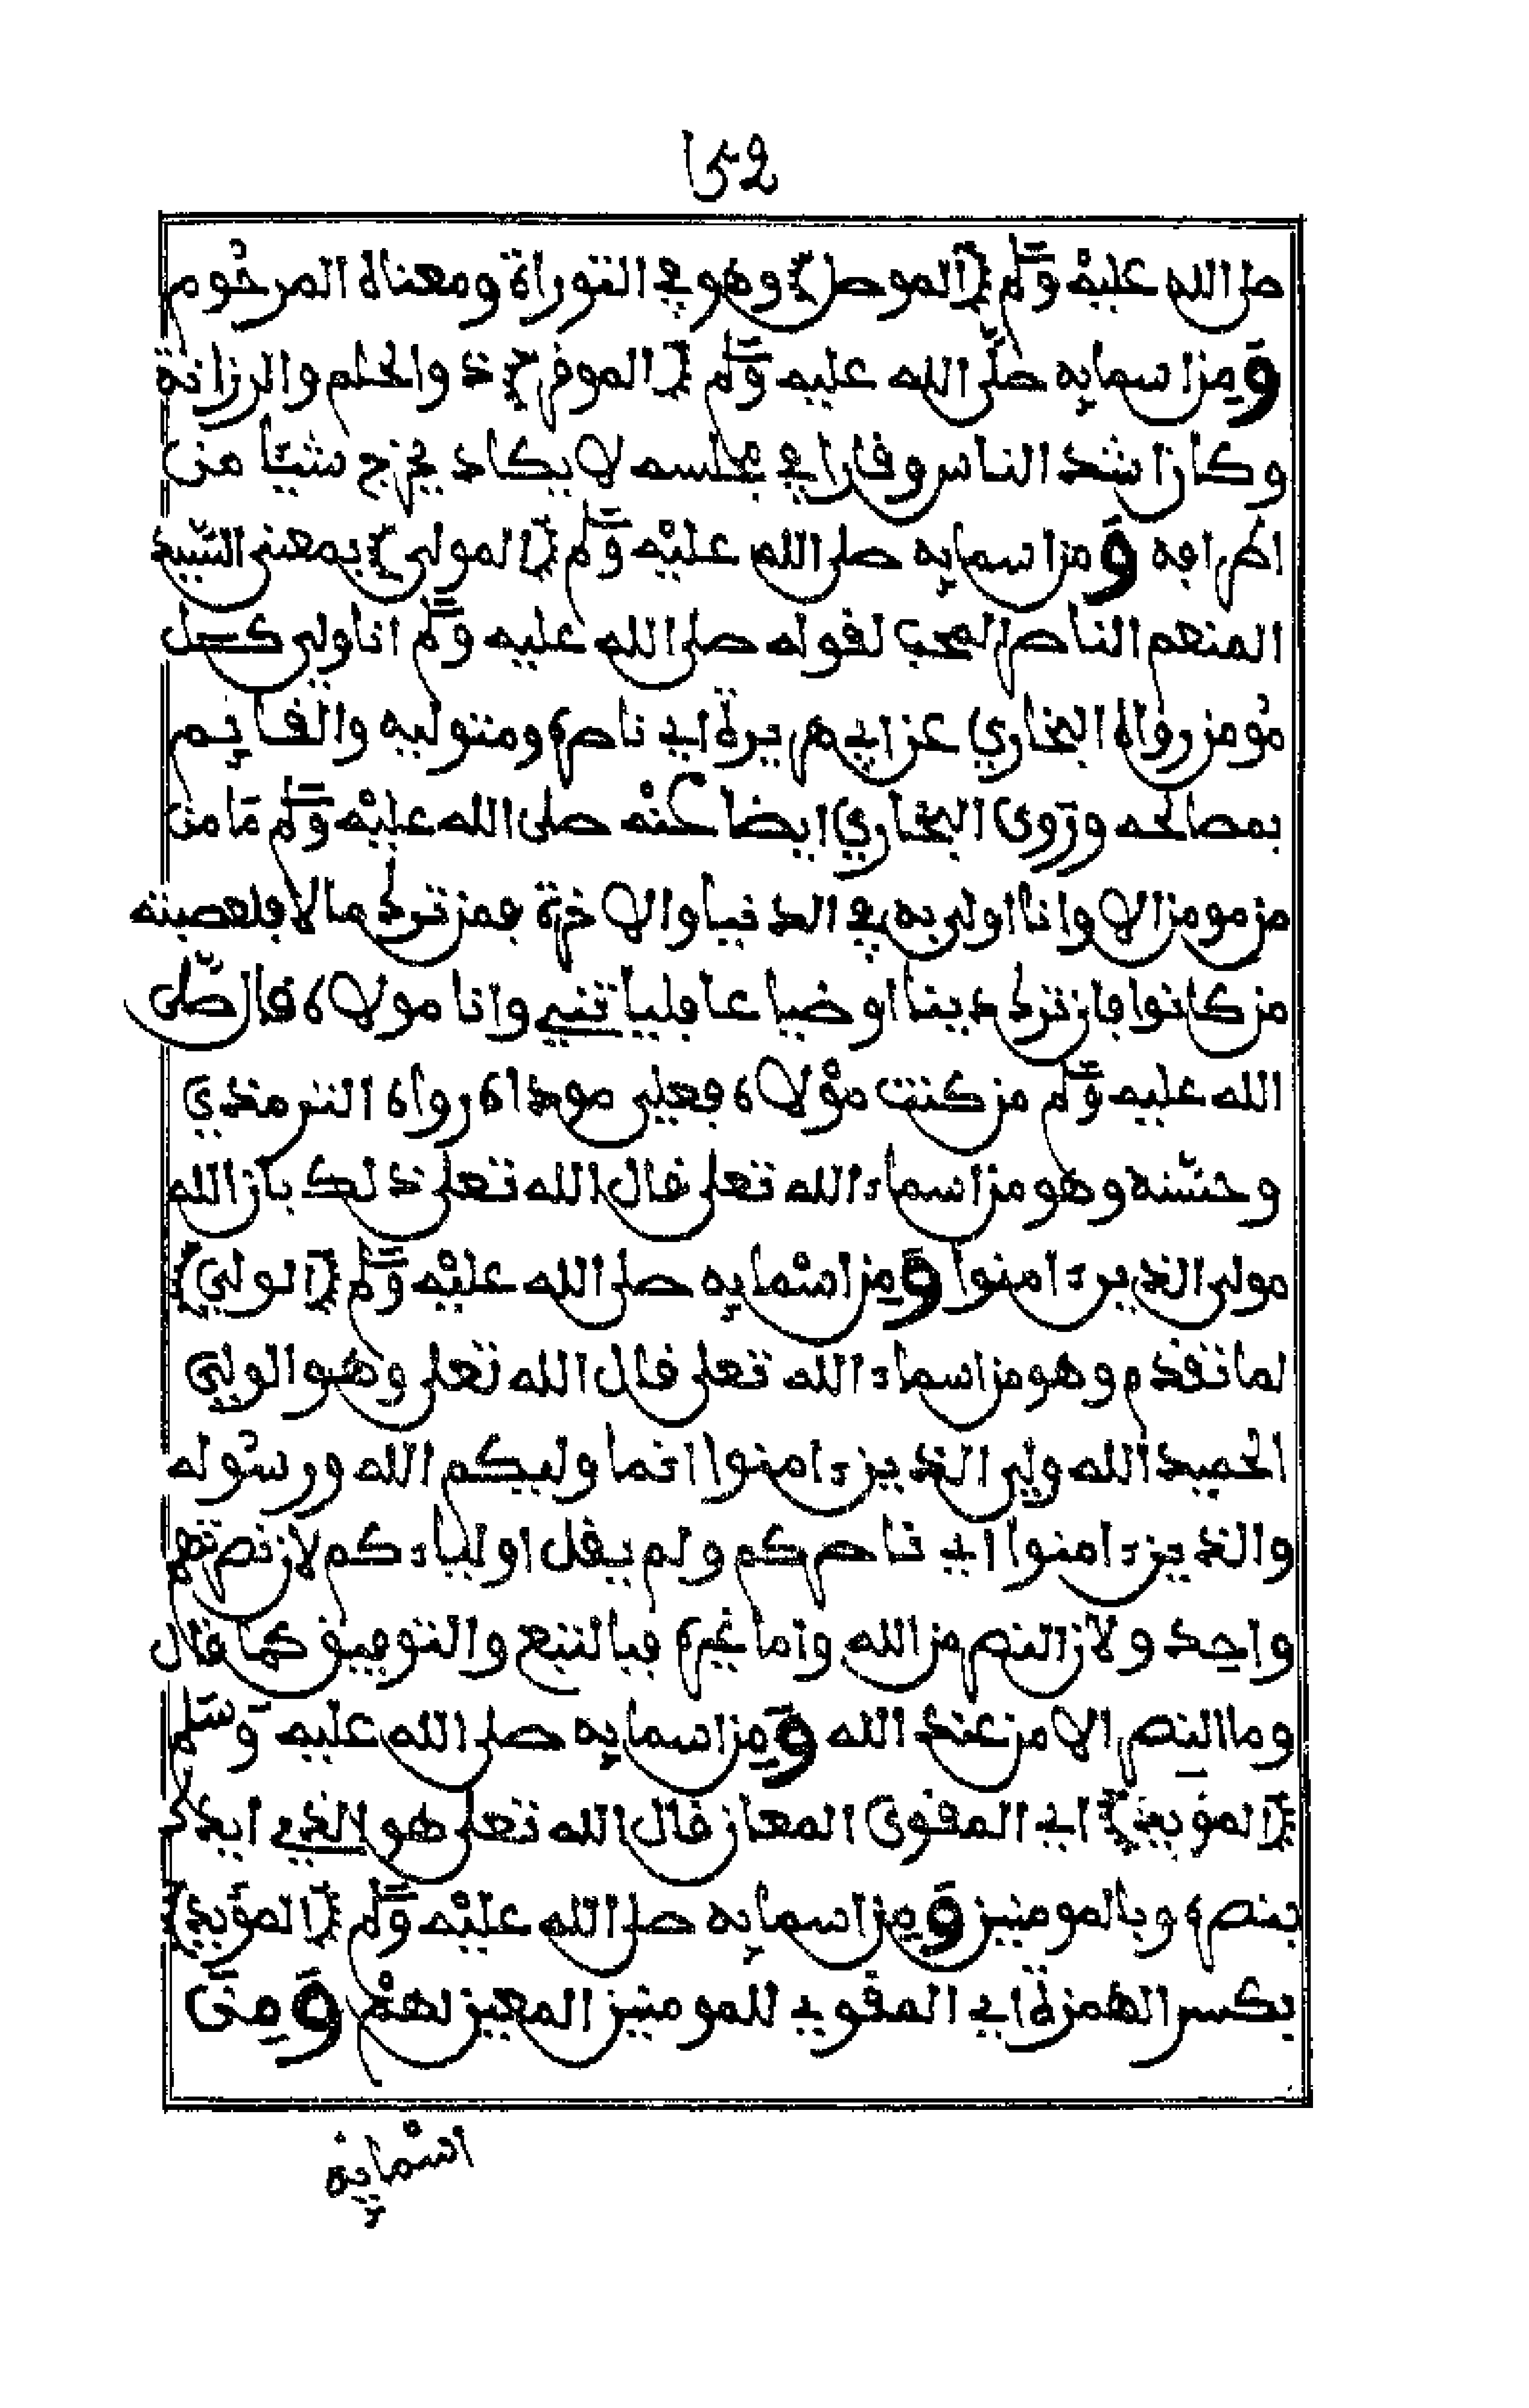 152
صلى الله عليه وسلم (الموصل) وهو في التوراة ومعناه المرحوم
ومن اسمايه صلى الله عليه وسلم (الموفر) ذو الحلم والرزانة
وكان اشد الناس وقارا في مجلسه لا يكاد يخرج شيئا من
اطرافه ومن اسمايه صلى الله عليه وسلم (المولى) بمعنى السيد
المنعم الناصر المحب لقوله صلى الله عليه وسلم انا ولي كل
مومن رواه البخاري عن ابي هريرة اي ناصره ومتوليه والقايم
بمصالحه وروى البخاري ايضا عنه صلى الله عليه وسلم ما من
من مومن الا وانا اولى به في الدنيا والاخرة فمن ترك مالا فلعصبته
من كانوا فان ترك دينا او ضياعا فلياتني وانا مولاه قال صلى
الله عليه وسلم من كنت مولاه فعلي مولاه رواه الترمذي
وحسنه وهو من اسماء الله تعلى قال الله تعلى ذلك بان الله
مولى الذين ءامنوا ومن اسمايه صلى الله عليه وسلم (الولي)
لما تقدم وهو من اسماء الله تعلى قال الله تعلى وهو الولي
الحميد الله ولي الذين ءامنوا انما وليكم الله ورسوله
والذين ءامنوا اي ناصركم ولم يقل اولياءكم لان نصرتهم
واحد ولان النصر من الله واما غيره فبالتبع والتوفيق كما قال
وما النصر الا من عند الله ومن اسمايه صلى الله عليه وسلم
(المؤيد) اي المقوى المعان قال الله تعلى هو الذي ايدك
بنصره وبالمومنين ومن اسمايه صلى الله عليه وسلم (المؤيد)
بكسر الهمزة اي المقوي للمومنين المعين لهم ومن
اسمايه